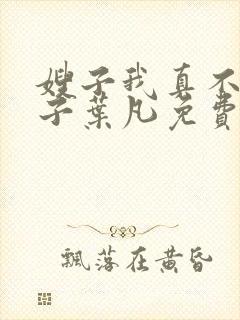 嫂子我真不
子葉凡免費
飄落在黃昏